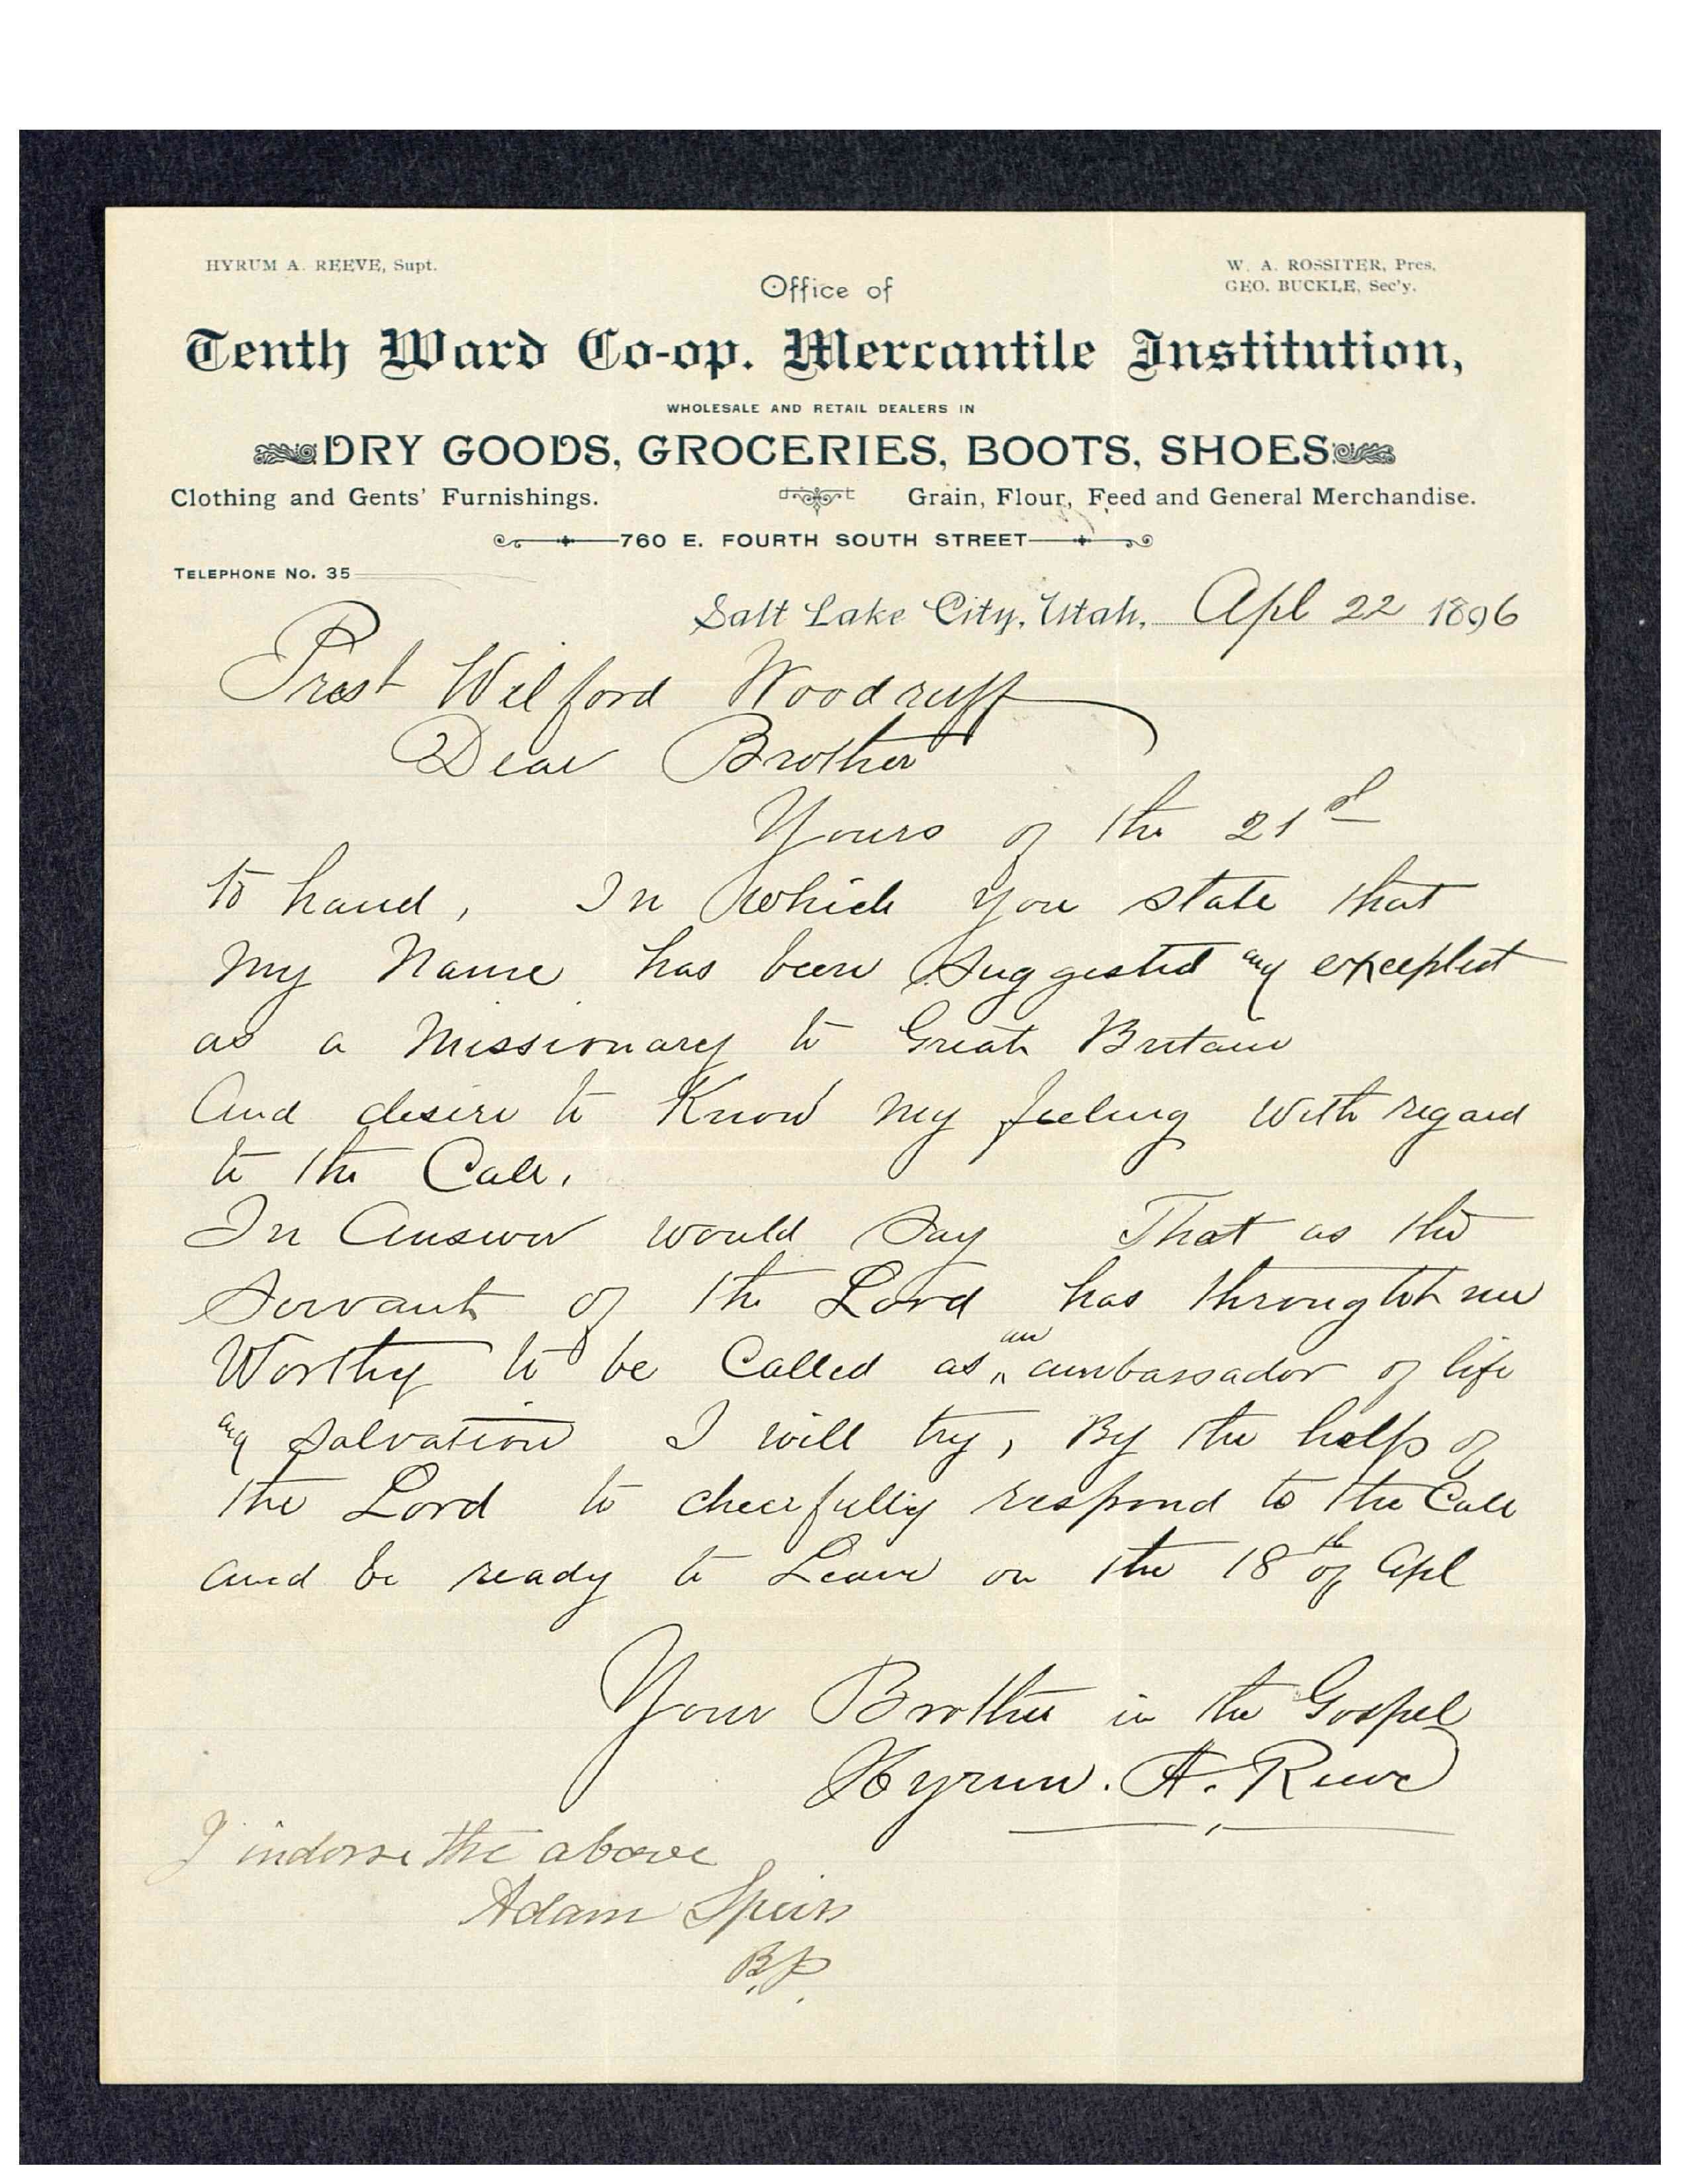 HYRUM A. REEVE, Supt.
W. A. ROSSITER, Pres.
GEO. BUCKLE, Sec'y.
Office of
Tenth Ward Co-op. Mercantile Institution,
WHOLESALE AND RETAIL DEALERS IN
DRY GOODS, GROCERIES, BOOTS, SHOES
Clothing and Gents' Furnishings. Grain, Flour, Feed and General Merchandise.
760 E. FOURTH SOUTH STREET
TELEPHONE NO. 35
Salt Lake City, Utah, Apl 22 1896
Prest Wilford Woodruff
Dear Brother
Yours of the 21st
to hand, In which you state that
my Name has been Suggested and excepted
as a Missionary to Great Britain
And desire to Know my feeling with regard
to the Call.
In Answer would Say That as the
Servant of the Lord has throught me
Worthy to be Called as an ambassador of life
and Salvation I will try, By the help of
the Lord to cheerfully respond to the Call
and be ready to Leave on the 18th of Apl
Your Brother in the Gospel
Hyrum. A. Reeve
I indorse the above
Adam Speirs
B.P.